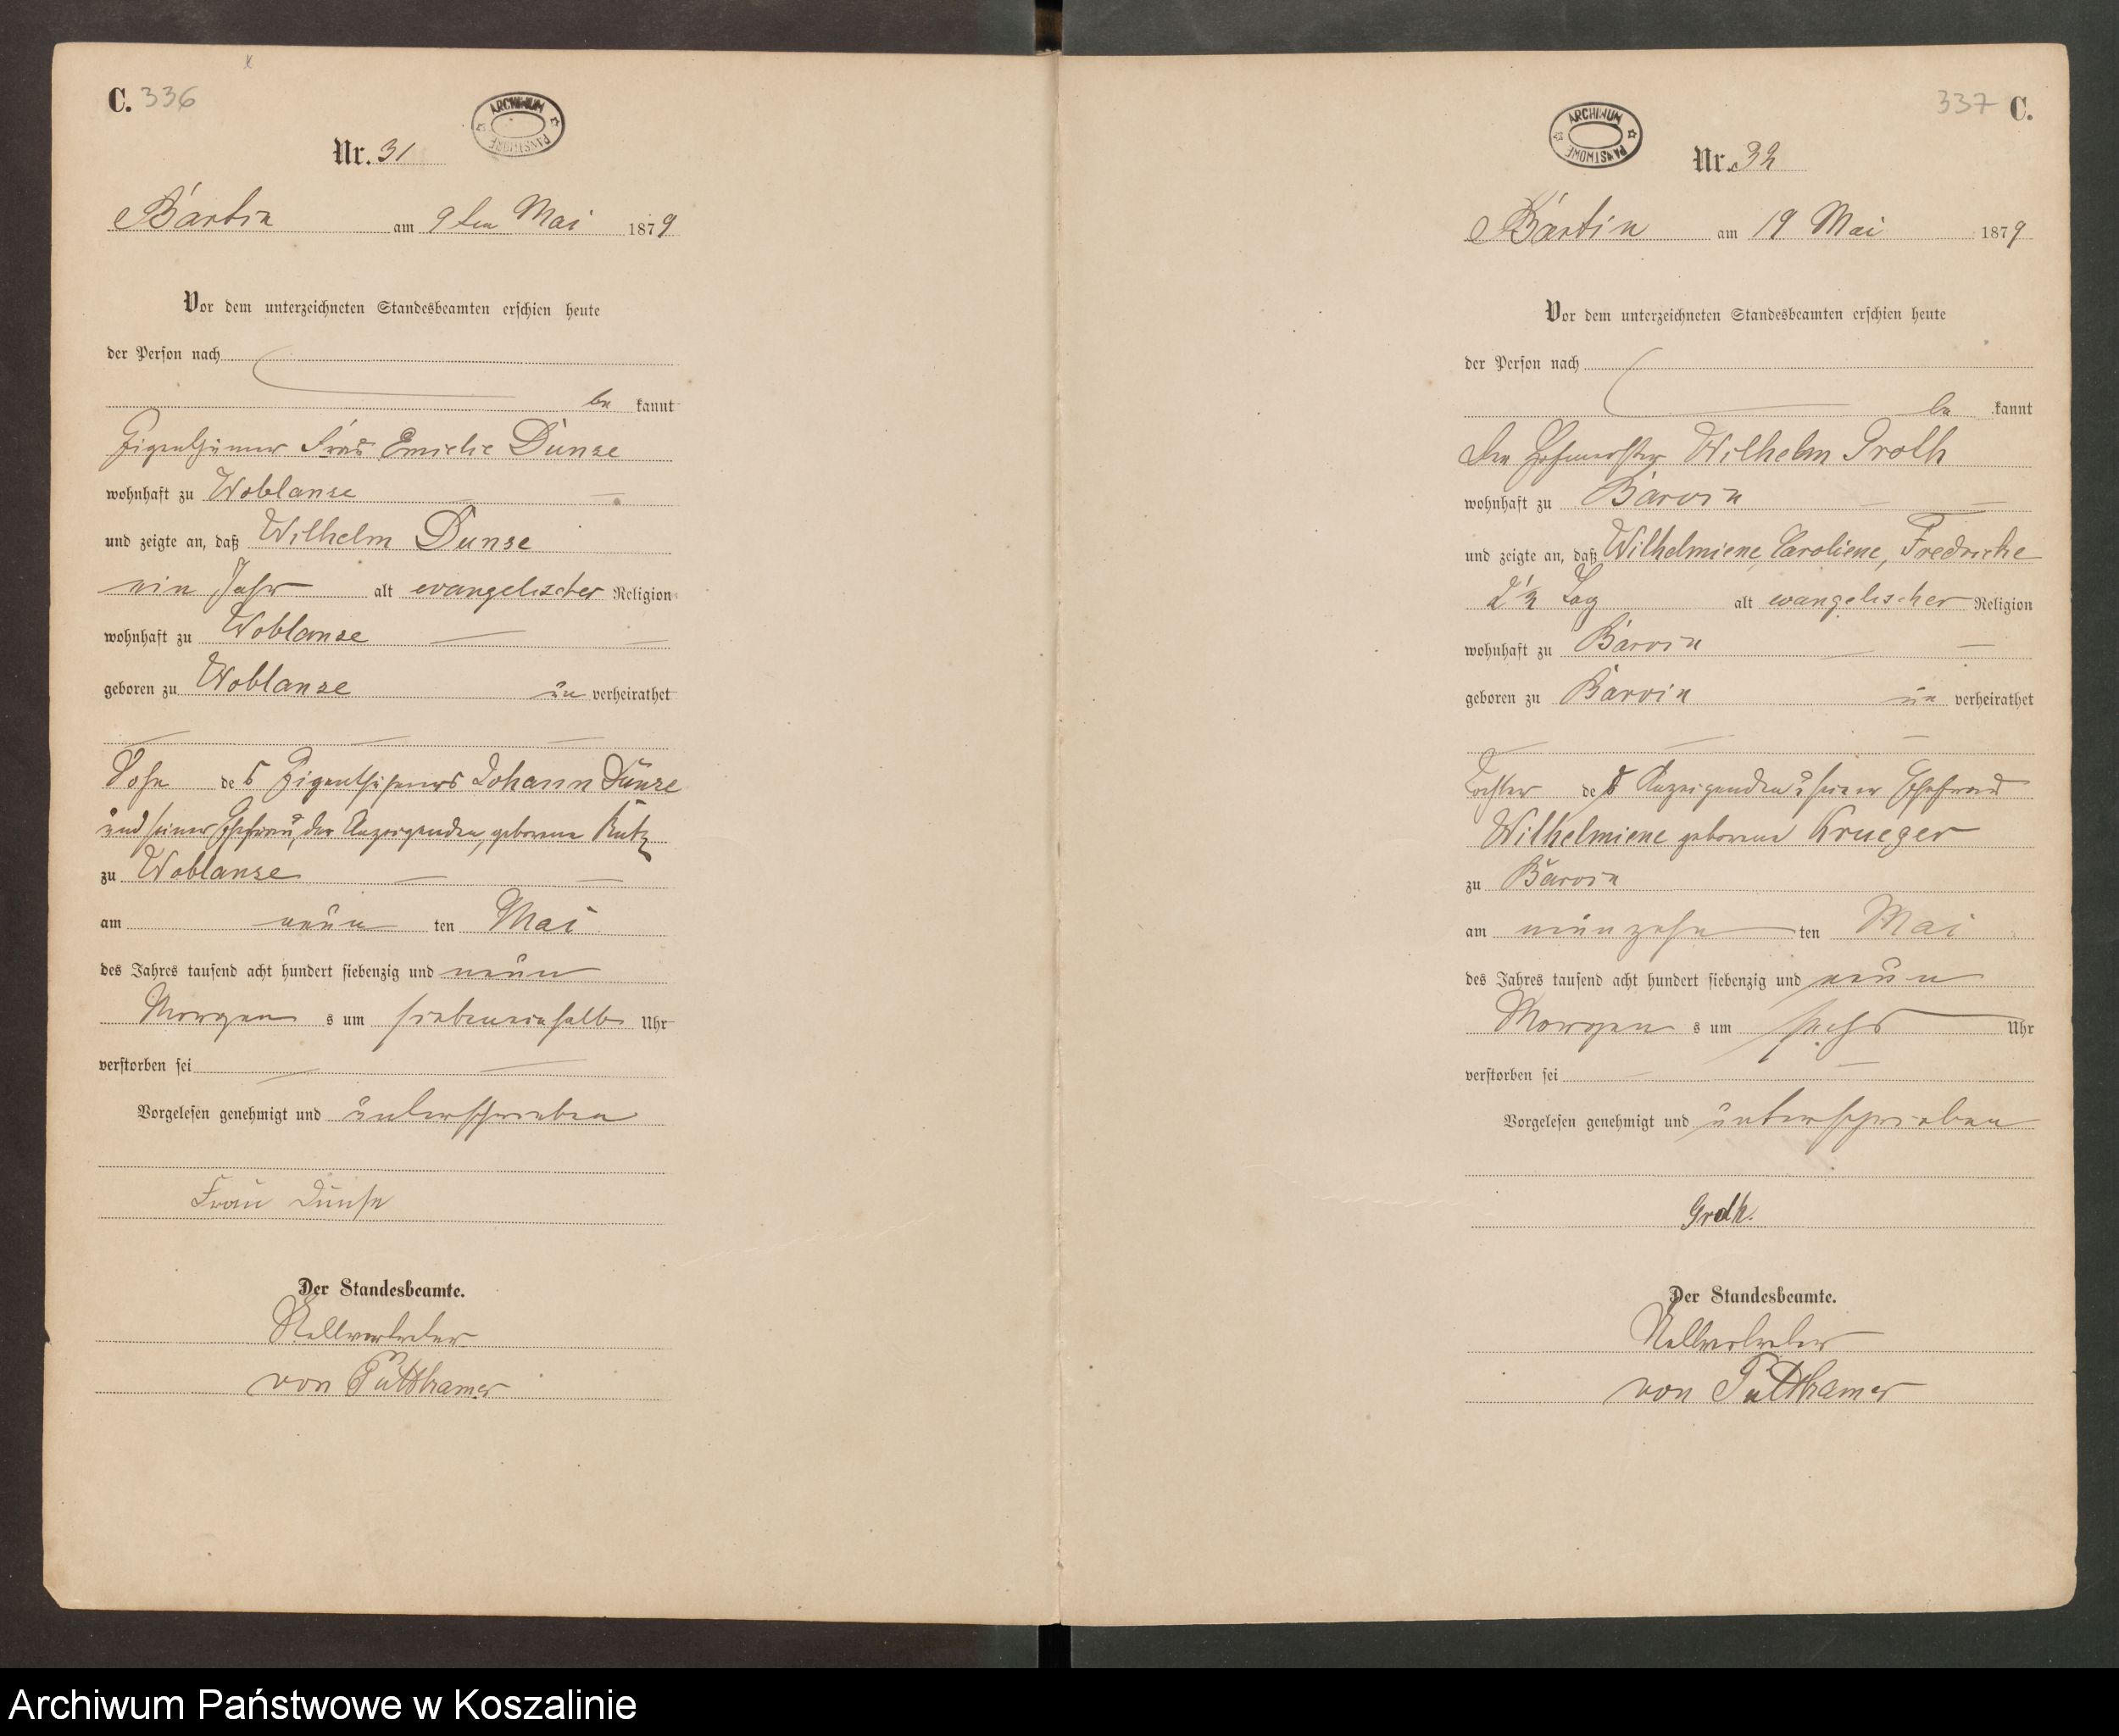 C. 336
ARCHIWUM PAŃSTWOWE
Nr. 31
Bartin am 9ten Mai 1879
Vor dem unterzeichneten Standesbeamten erschien heute
der Person nach
be kannt
Eigenthümer Frau Emielie Dunse
wohnhaft zu Woblanse
und zeigte an, daß Wilhelm Dunse
ein Jahr alt evangelischer Religion
wohnhaft zu Woblanse
geboren zu Woblanse un verheirathet
Sohn des Eigenthümers Johann Dunse
und seiner Ehefrau, der Anzeigenden, geborene Rutz
zu Woblanse
am neun ten Mai
des Jahres tausend acht hundert siebenzig und neun
Morgen s um siebeneinhalb Uhr
verstorben sei
Vorgelesen genehmigt und unterschrieben
Frau Dunse
Der Standesbeamte.
Stellvertreter
von Puttkamer
337 C.
ARCHIWUM PAŃSTWOWE
Nr. 32
Bartin am 19 Mai 1879
Vor dem unterzeichneten Standesbeamten erschien heute
der Person nach
be kannt
Der Hofmeister Wilhelm Groth
wohnhaft zu Barvin
und zeigte an, daß Wilhelmiene, Caroliene, Fredricke
2 1/2 Tag alt evangelischer Religion
wohnhaft zu Barvin
geboren zu Barvin un verheirathet
Tochter des Anzeigenden u seiner Ehefrau
Wilhelmiene geborene Krueger
zu Barvin
am neunzehn ten Mai
des Jahres tausend acht hundert siebenzig und neun
Morgen s um sechs Uhr
verstorben sei
Vorgelesen genehmigt und unterschrieben
Groth.
Der Standesbeamte.
Stellvertreter
von Puttkamer
Archiwum Państwowe w Koszalinie